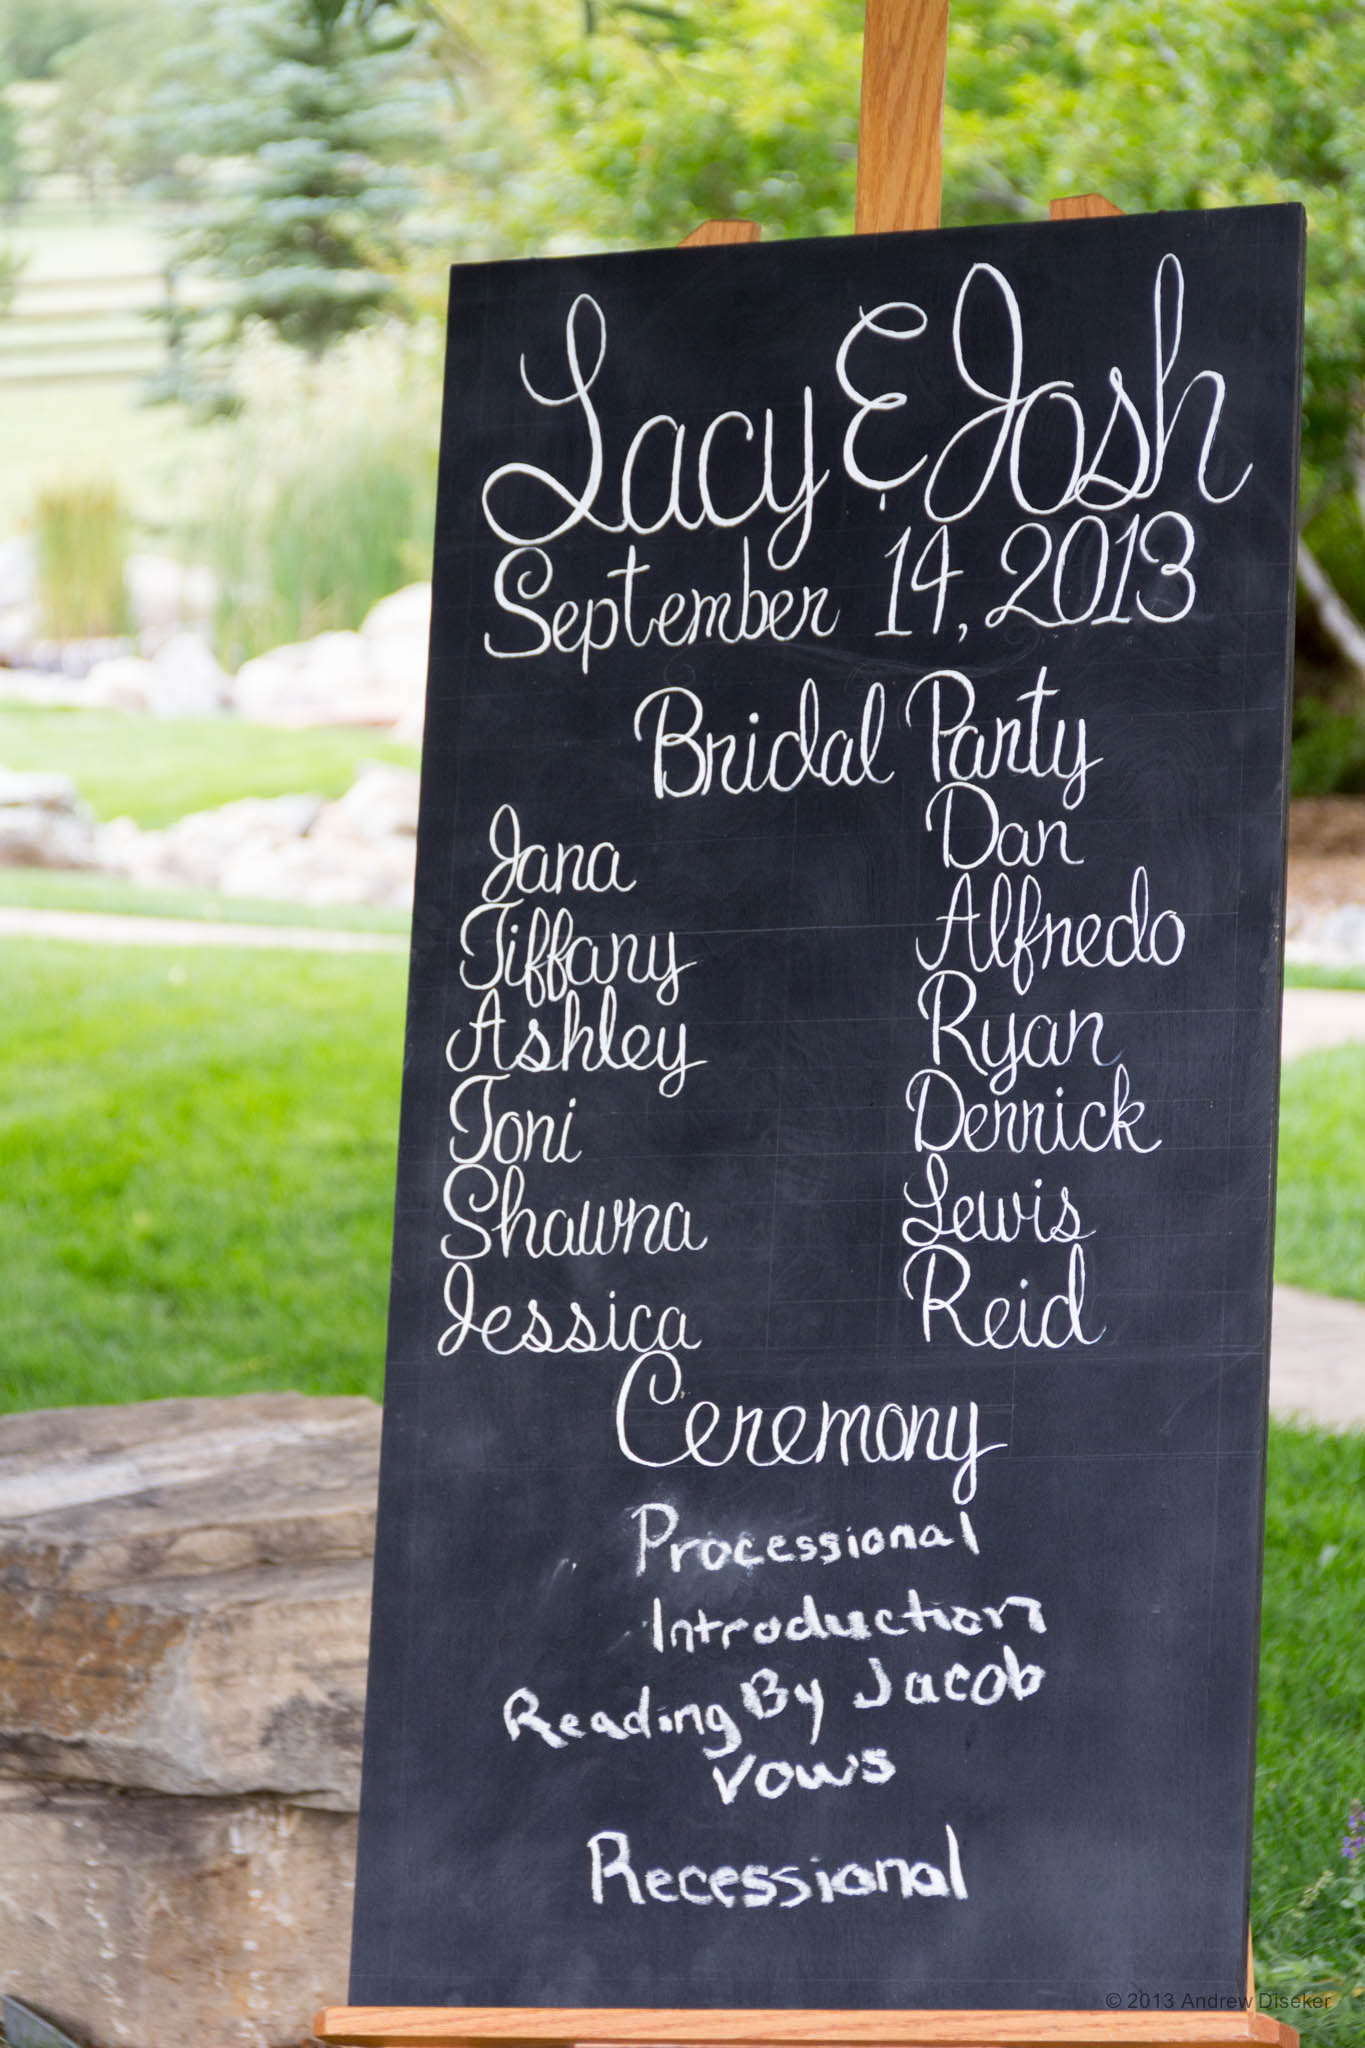 Lacy & Josh
September 14, 2013
Bridal Party
Jana Dan
Tiffany Alfredo
Ashley Ryan
Toni Derrick
Shawna Lewis
Jessica Reid
Ceremony
Processional
Introduction
Reading By Jacob
Vows
Recessional
© 2013 Andrew Diseker